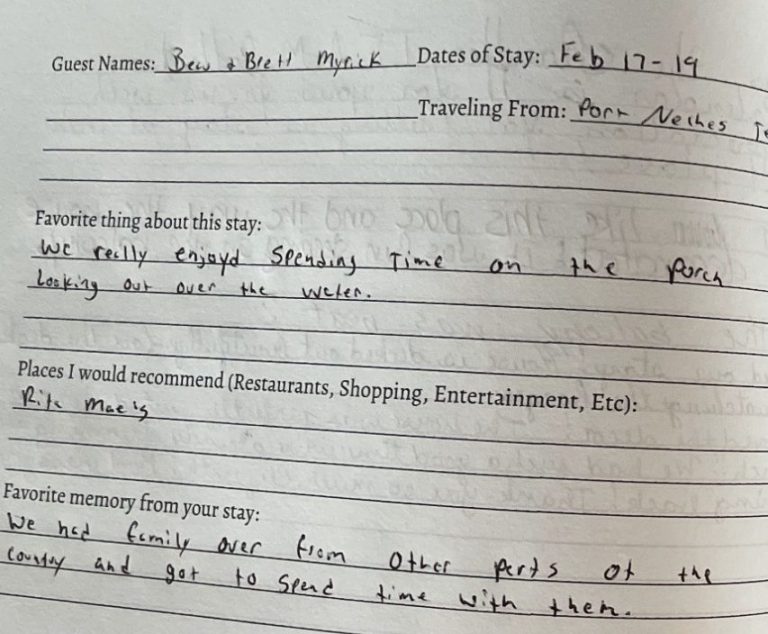 Guest Names: Bew & Brett Myrick Dates of Stay: Feb 17-19
Traveling From: Port Neches
Favorite thing about this stay:
We reilly enjoyd Spending Time on the Porch
Looking out over the water.
Places I would recommend (Restaurants, Shopping, Entertainment, Etc):
Rita Mae's
Favorite memory from your stay:
We had family over from other parts of the
country and got to spend time with them.